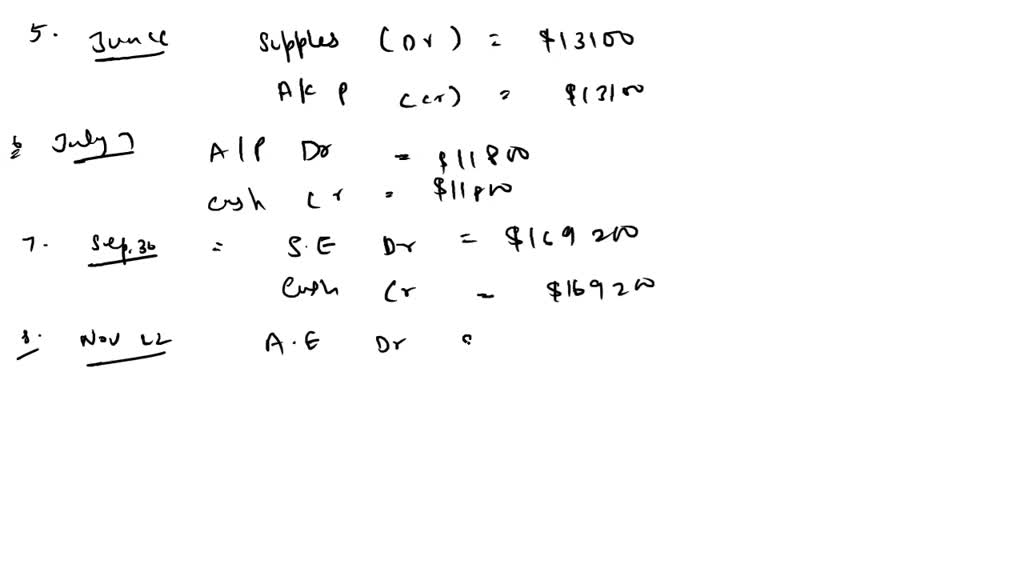 5. June Supples (Dr) = $13100
A/c P (cr) = $13100
6 July 7 A/P Dr = $11800
cash Cr = $11800
7. Sep.30 = S.E Dr = $169200
Cash Cr = $169200
8. Nov 22 A.E Dr